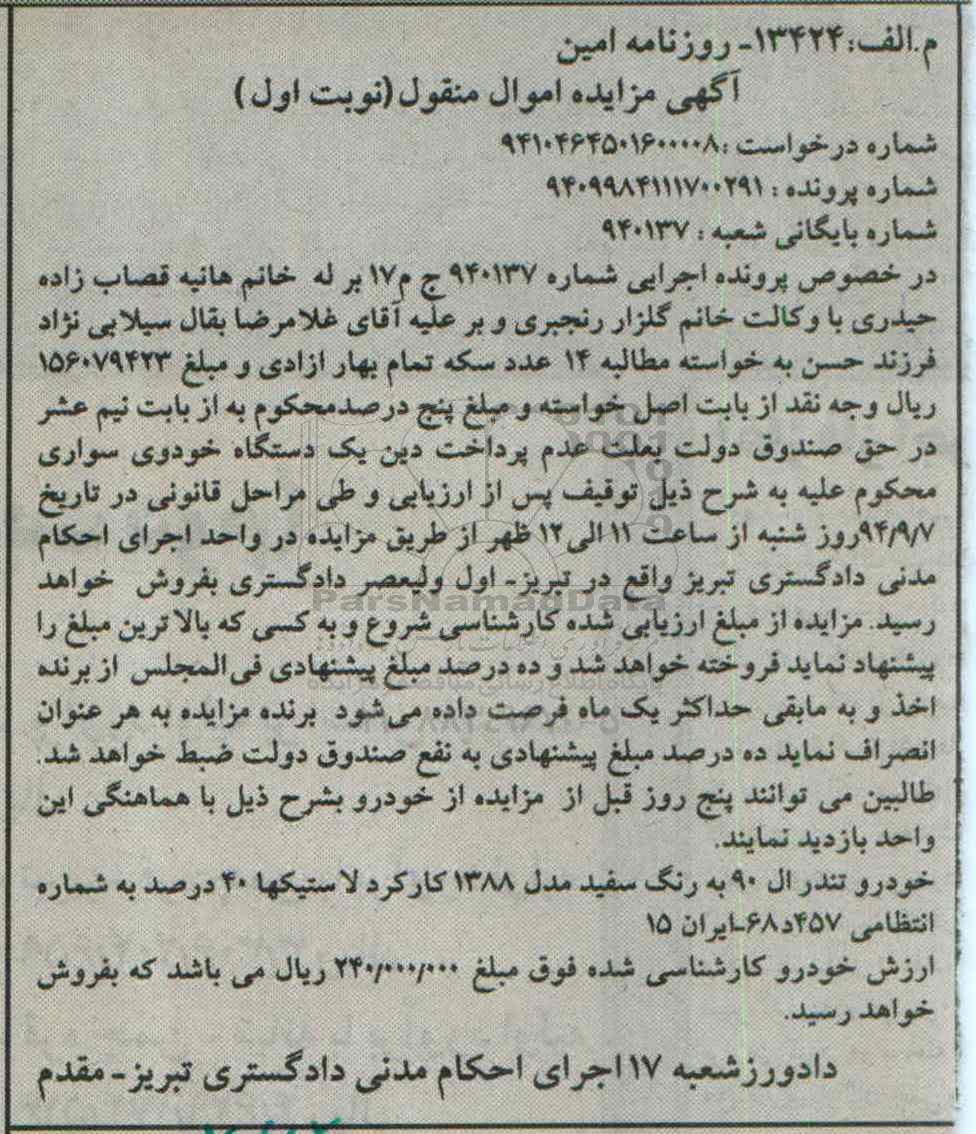 م.الف:۱۳۴۲۴- روزنامه امین
آگهی مزایده اموال منقول (نوبت اول)
شماره درخواست :۹۴۱۰۴۶۴۵۰۱۶۰۰۰۰۸
شماره پرونده : ۹۴۰۹۹۸۴۱۱۱۷۰۰۲۹۱
شماره بایگانی شعبه : ۹۴۰۱۳۷
در خصوص پرونده اجرایی شماره ۹۴۰۱۳۷ ج م۱۷ بر له خانم هانیه قصاب زاده
حیدری با وکالت خانم گلزار رنجبری و بر علیه آقای غلامرضا بقال سیلابی نژاد
فرزند حسن به خواسته مطالبه ۱۴ عدد سکه تمام بهار ازادی و مبلغ ۱۵۶۰۷۹۴۲۳
ریال وجه نقد از بابت اصل خواسته و مبلغ پنج درصدمحکوم به از بابت نیم عشر
در حق صندوق دولت بعلت عدم پرداخت دین یک دستگاه خودوی سواری
محکوم علیه به شرح ذیل توقیف پس از ارزیابی و طی مراحل قانونی در تاریخ
۹۴/۹/۷روز شنبه از ساعت ۱۱ الی ۱۲ ظهر از طریق مزایده در واحد اجرای احکام
مدنی دادگستری تبریز واقع در تبریز- اول ولیعصر دادگستری بفروش خواهد
رسید. مزایده از مبلغ ارزیابی شده کارشناسی شروع و به کسی که بالا ترین مبلغ را
پیشنهاد نماید فروخته خواهد شد و ده درصد مبلغ پیشنهادی فی المجلس از برنده
اخذ و به مابقی حداکثر یک ماه فرصت داده می شود برنده مزایده به هر عنوان
انصراف نماید ده درصد مبلغ پیشنهادی به نفع صندوق دولت ضبط خواهد شد.
طالبین می توانند پنج روز قبل از مزایده از خودرو بشرح ذیل با هماهنگی این
واحد بازدید نمایند.
خودرو تندر ال ۹۰ به رنگ سفید مدل ۱۳۸۸ کارکرد لاستیکها ۴۰ درصد به شماره
انتظامی ۴۵۷د۶۸-ایران ۱۵
ارزش خودرو کارشناسی شده فوق مبلغ ۲۴۰/۰۰۰/۰۰۰ ریال می باشد که بفروش
خواهد رسید.
دادورزشعبه ۱۷ اجرای احکام مدنی دادگستری تبریز - مقدم
ParsNamadData